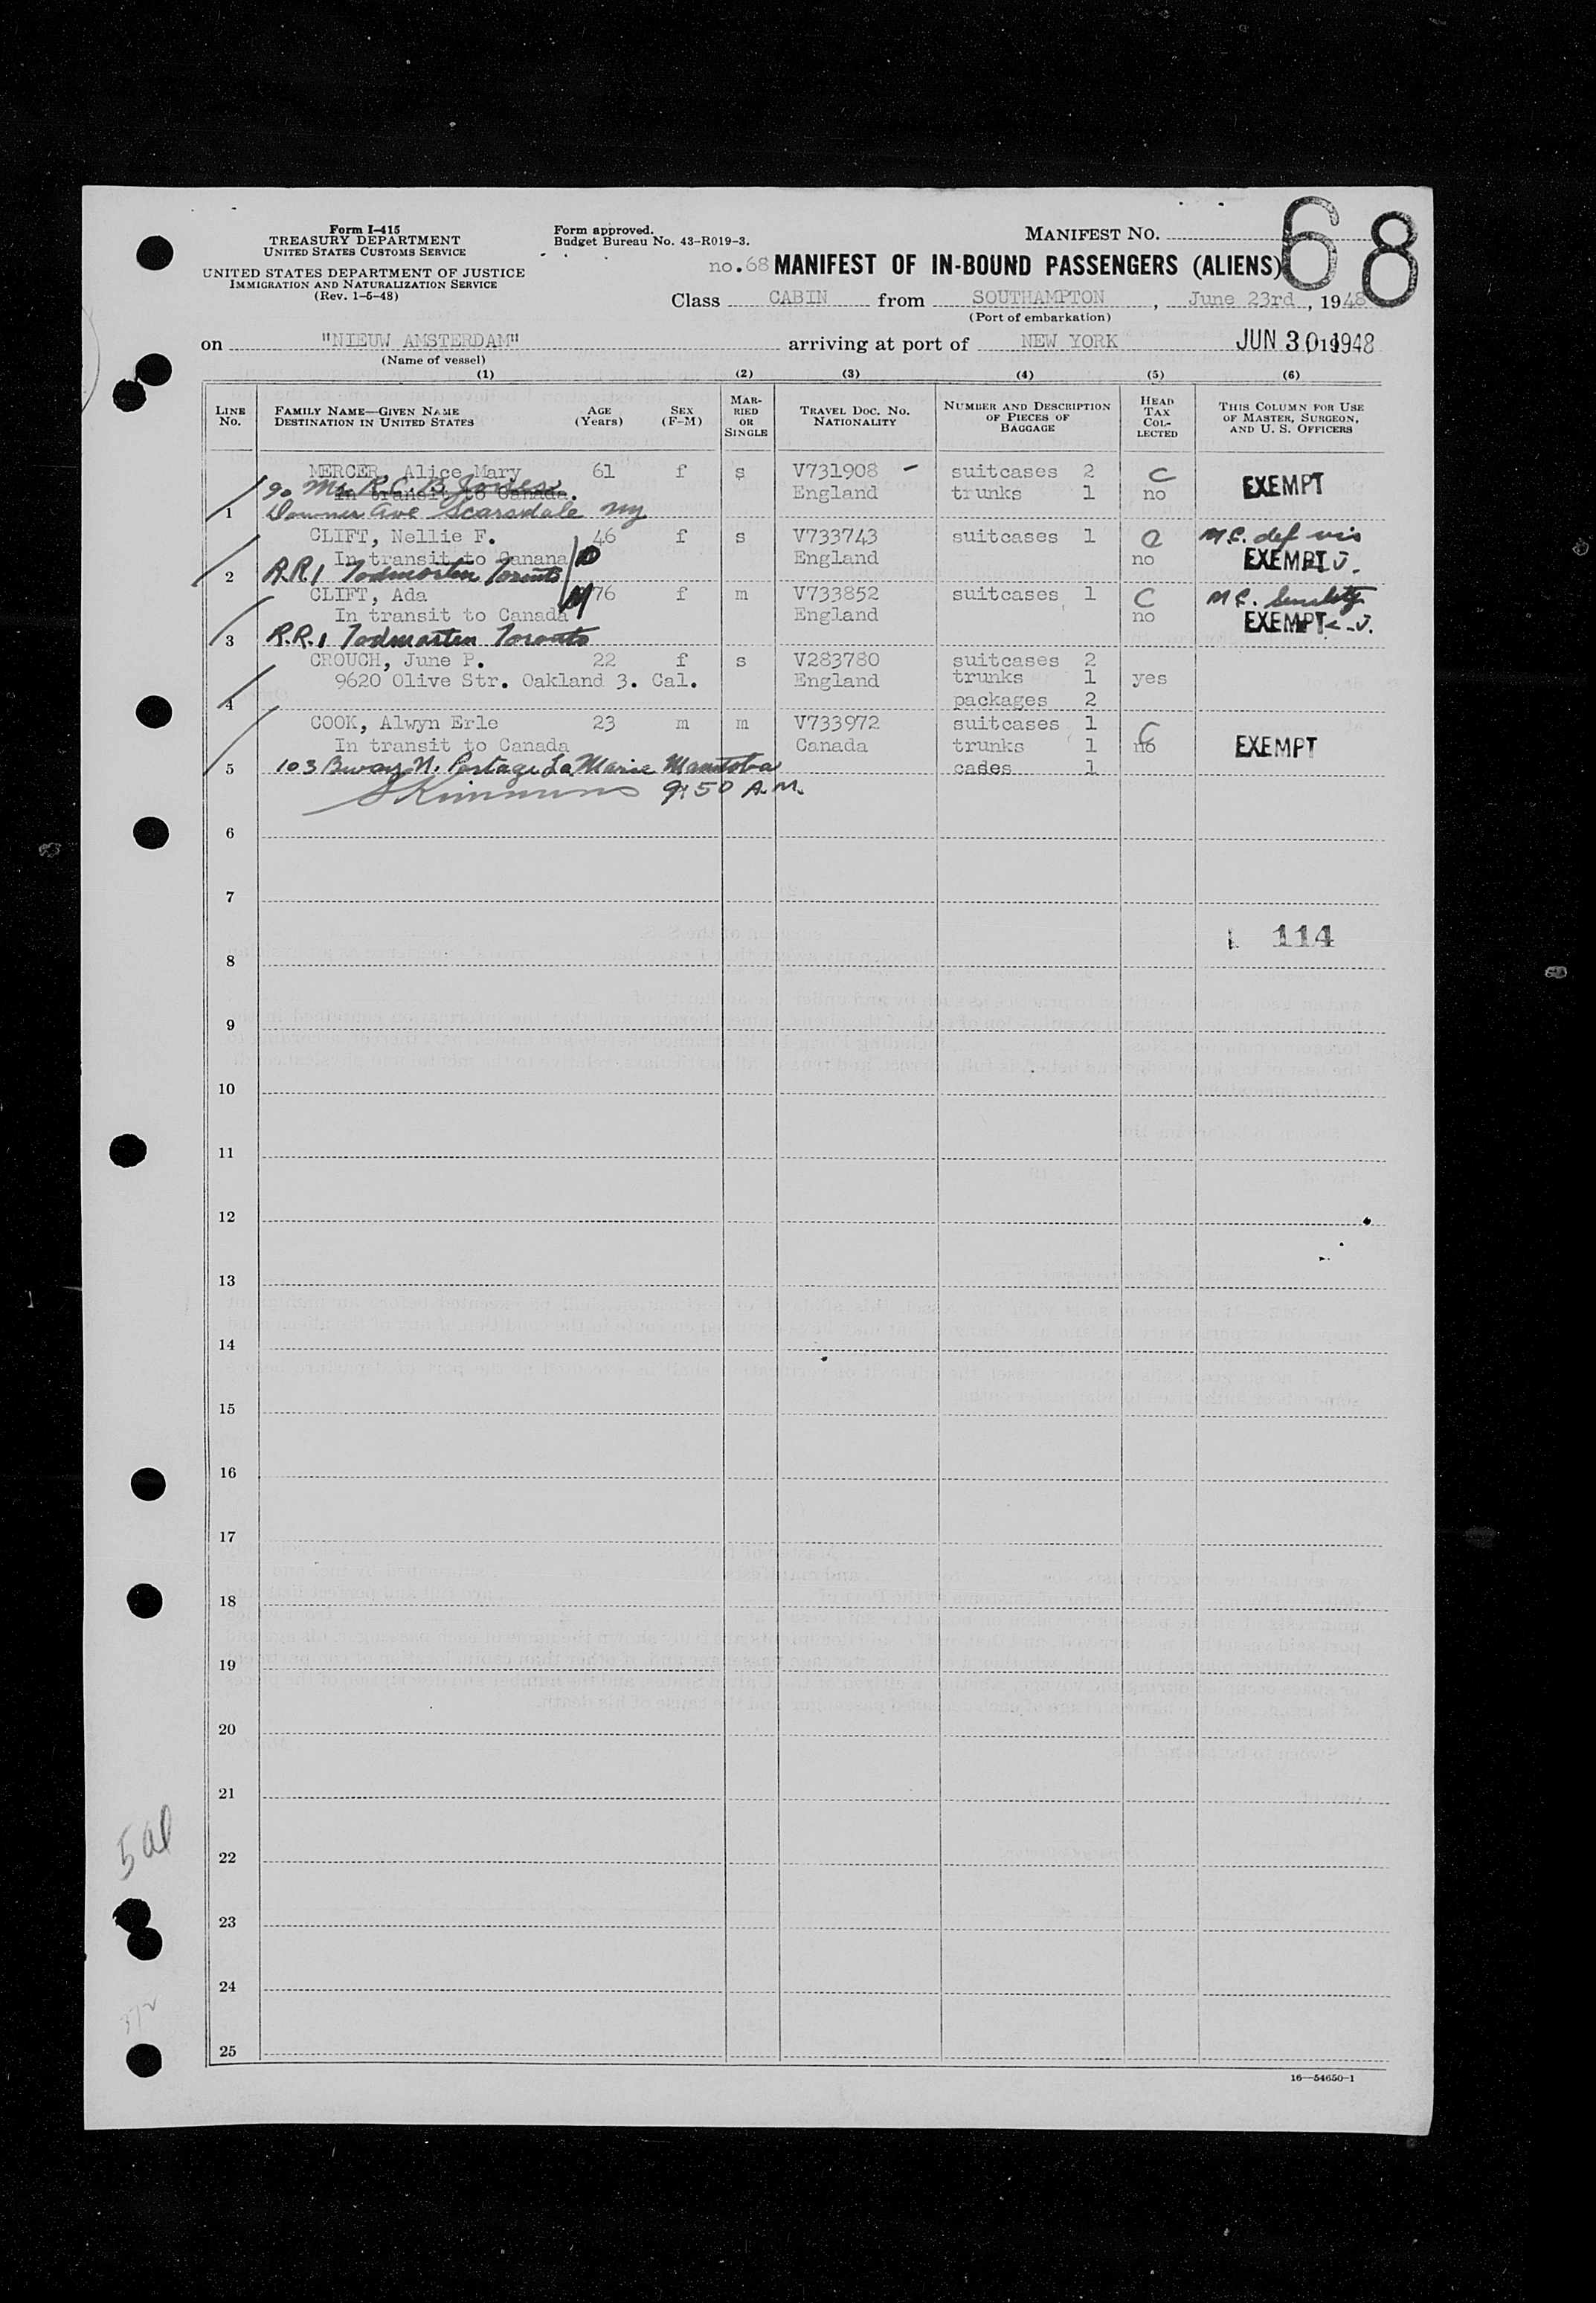 Form I-415
TREASURY DEPARTMENT
UNITED STATES CUSTOMS SERVICE
UNITED STATES DEPARTMENT OF JUSTICE
IMMIGRATION AND NATURALIZATION SERVICE
(Rev. 1-5-48)
Form approved.
Budget Bureau No. 43-R019-3.
MANIFEST NO.
68
no.68 MANIFEST OF IN-BOUND PASSENGERS (ALIENS)
Class CABIN from SOUTHAMPTON, June 23rd, 1948
(Port of embarkation)
on "NIEUW AMSTERDAM" arriving at port of NEW YORK JUN 30 1948
(Name of vessel)
(1) (2) (3) (4) (5) (6)
LINE NO.
FAMILY NAME—GIVEN NAME
DESTINATION IN UNITED STATES
AGE (Years)
SEX (F-M)
MARRIED OR SINGLE
TRAVEL DOC. NO.
NATIONALITY
NUMBER AND DESCRIPTION OF PIECES OF BAGGAGE
HEAD TAX COLLECTED
THIS COLUMN FOR USE OF MASTER, SURGEON, AND U. S. OFFICERS
MERCER, Alice Mary 61 f s V731908 - suitcases 2 C
In transit to Canada. England trunks 1 no EXEMPT
R.C.B. Jones
1 Ave Scarsdale NY
CLIFT, Nellie F. 46 f s V733743 suitcases 1 C M.C. def vis
In transit to Canana England no EXEMPT
2 R.R.1 Todmorten Toronto
CLIFT, Ada 76 f m V733852 suitcases 1 C M.C. Senility
In transit to Canada England no EXEMPT
3 R.R.1 Todmorten Toronto
CROUCH, June P. 22 f s V283780 suitcases 2
9620 Olive Str. Oakland 3. Cal. England trunks 1 yes
4 packages 2
COOK, Alwyn Erle 23 m m V733972 suitcases 1 C
In transit to Canada Canada trunks 1 no EXEMPT
5 103 Bway N. Portage La Marie Manitoba cades 1
9:50 A.M.
6
7
114
8
9
10
11
12
13
14
15
16
17
18
19
20
21
22
23
24
25
16—54650-1